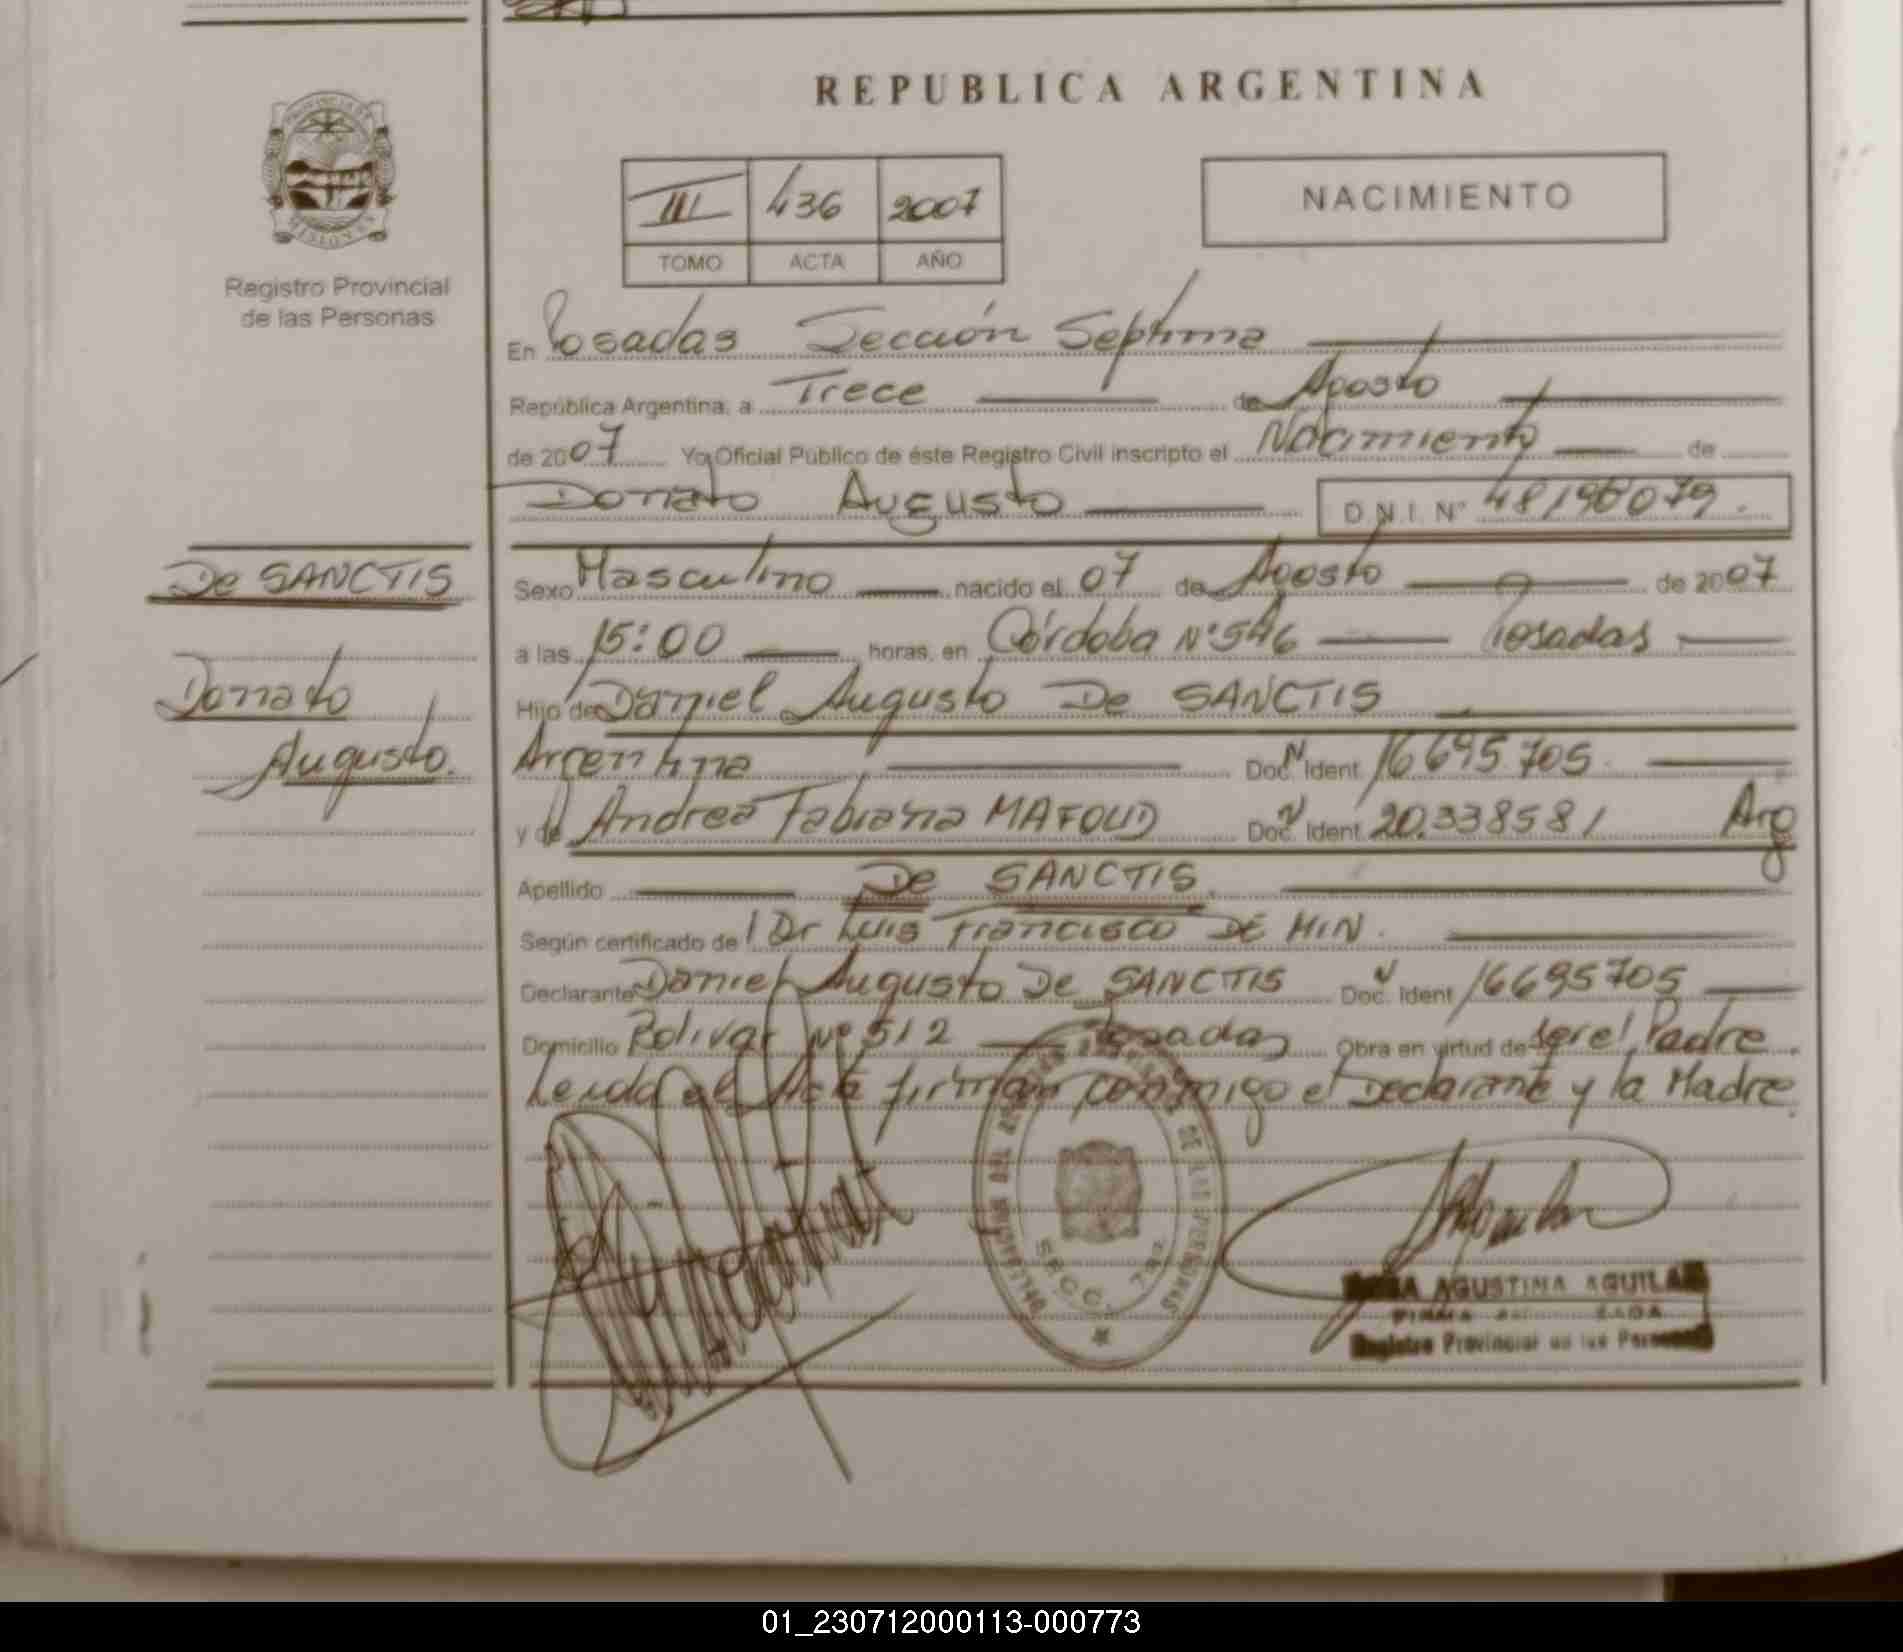 REPUBLICA ARGENTINA
PROVINCIA DE
MISIONES
Registro Provincial
de las Personas
III 436 2007
TOMO ACTA AÑO
NACIMIENTO
En Posadas Sección Séptima
República Argentina, a Trece de Agosto
de 2007 Yo Oficial Público de éste Registro Civil inscripto el Nacimiento de
Donato Augusto D.N.I. Nº
De SANCTIS
Donato
Augusto.
Sexo Masculino nacido el 07 de Agosto de 2007
a las 15:00 horas, en Córdoba Nº 546 Posadas
Hijo de Daniel Augusto De SANCTIS
Argentina Doc. N Ident. 16695705.
y de Andrea Fabiana MAFOUD Doc. N Ident. 20.338581 Arg
Apellido De SANCTIS.
Según certificado de l Dr Luis Francisco DE MIN.
Declarante Daniel Augusto De SANCTIS Doc. N Ident 16695705
Domicilio Bolivar Nº 512 Posadas Obra en virtud de ser el Padre.
Leida el Acta firman conmigo el Declarante y la Madre.
DE LAS PERSONAS
SECC. 7ma
AGUSTINA AGUILAR
Registro Provincial de las Personas
01_230712000113-000773